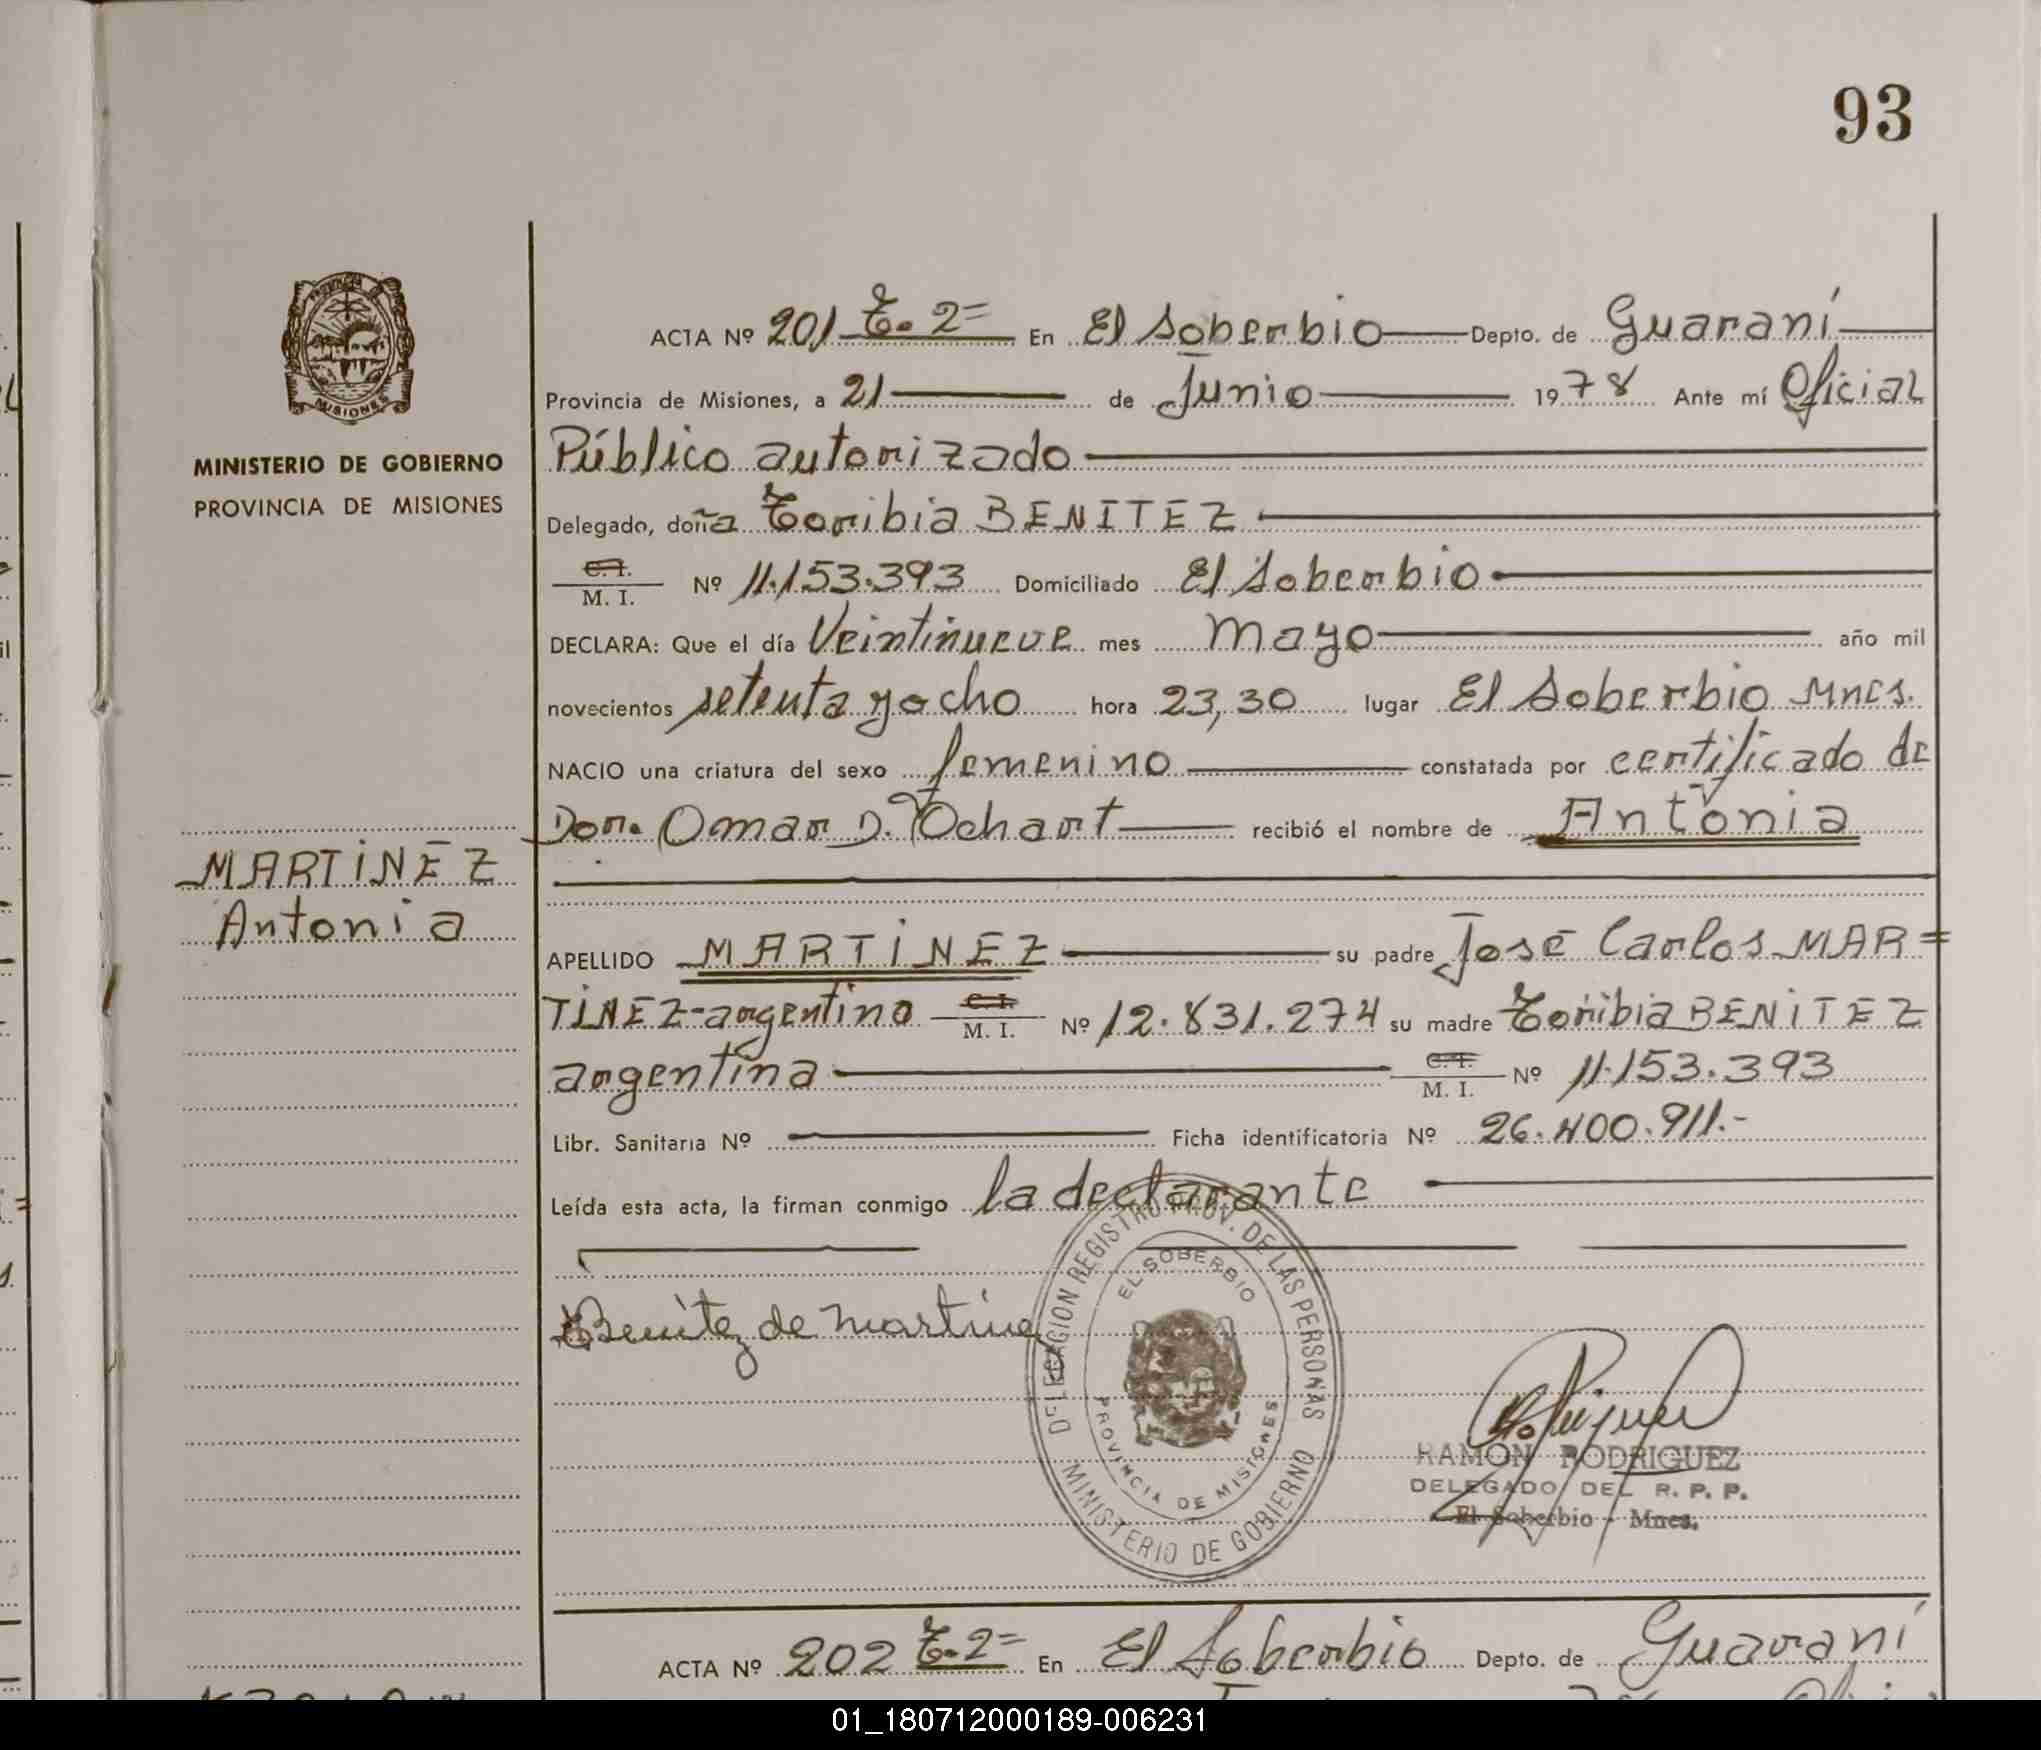 93
ACTA Nº 201 T. 2= En El Soberbio Depto. de Guaraní
Provincia de Misiones, a 21 de Junio 1978 Ante mí Oficial
Público autorizado
Delegado, doña Toribia BENITEZ
C. I.
M. I. Nº 11.153.393 Domiciliado El Soberbio
DECLARA: Que el día Veintinueve mes Mayo año mil
novecientos setenta y ocho hora 23,30 lugar El Soberbio Mnes.
NACIO una criatura del sexo femenino constatada por certificado de
Dor. Omar D. Ochart recibió el nombre de Antonia
APELLIDO MARTINEZ su padre José Carlos MAR=
TINEZ-argentino C. I. M. I. Nº 12.831.274 su madre Toribia BENITEZ
argentina C. I. M. I. Nº 11.153.393
Libr. Sanitaria Nº Ficha identificatoria Nº 26.400.911.-
Leída esta acta, la firman conmigo la declarante
MINISTERIO DE GOBIERNO
PROVINCIA DE MISIONES
MARTINEZ
Antonia
PROVINCIA DE
MISIONES
Benitez de Martinez
DELEGACION REGISTRO PROV. DE LAS PERSONAS
EL SOBERBIO
PROVINCIA DE MISIONES
MINISTERIO DE GOBIERNO
RAMON RODRIGUEZ
DELEGADO DEL R. P. P.
El Soberbio - Mnes.
ACTA Nº 202 T. 2= En El Soberbio Depto. de Guaraní
01_180712000189-006231